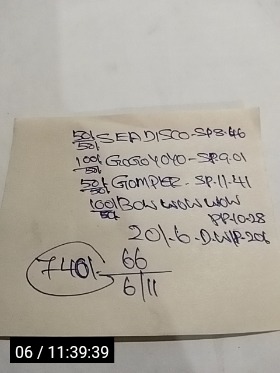 50/50/ SEADISCO-SP.8.46
100/50/ GOGOYOYO-SP.9.01
50/50/ GOMPIER-SP.11.41
100/50/ BOW WOW WOW
PP.10.28
20/.6.D.W/P-20/
740/- 66
6/11
06 / 11:39:39